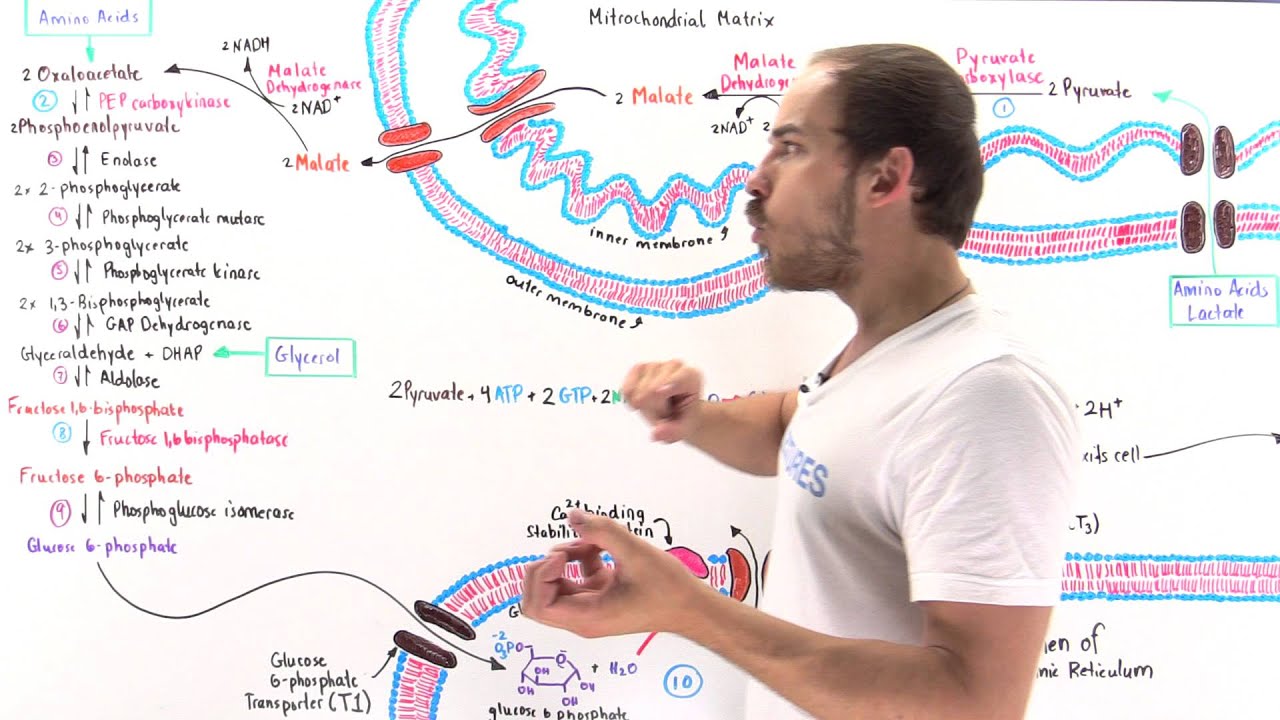 Amino Acids
2 Oxaloacetate
2
PEP carboxykinase
2Phosphoenolpyruvate
3
Enolase
2x 2-phosphoglycerate
4
Phosphoglycerate mutase
2x 3-phosphoglycerate
5
Phosphoglycerate kinase
2x 1,3-Bisphosphoglycerate
6
GAP Dehydrogenase
Glyceraldehyde + DHAP
Glycerol
7
Aldolase
Fructose 1,6-bisphosphate
8
Fructose 1,6 bisphosphatase
Fructose 6-phosphate
9
Phosphoglucose isomerase
Glucose 6-phosphate
2 NADH
Malate
Dehydrogenase
2NAD+
2 Malate
Mitrochondrial Matrix
2 Malate
Malate
2NAD+
Pyruvate
1
2 Pyruvate
inner membrane
outer membrane
Amino Acids
Lactate
2Pyruvate + 4 ATP + 2 GTP + 2
2H+
cell
Ca2+ binding
Glucose
6-phosphate
Transporter (T1)
-2
O3PO
O
OH
OH
OH
OH
+ H2O
10
glucose 6 phosphate
of
Reticulum
URES